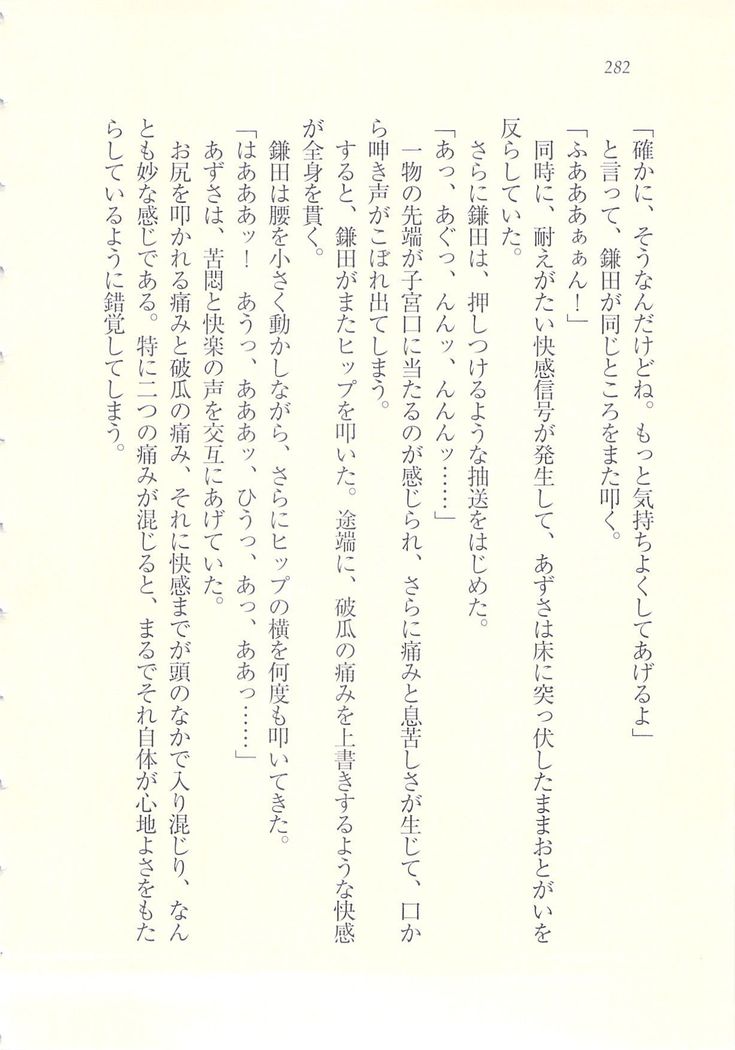 282
「確かに、そうなんだけどね。もっと気持ちよくしてあげるよ」
と言って、鎌田が同じところをまた叩く。
「ふあああぁぁん！」
同時に、耐えがたい快感信号が発生して、あずさは床に突っ伏したままおとがいを
反らしていた。
さらに鎌田は、押しつけるような抽送をはじめた。
「あっ、あぐっ、んんッ、んんんッ……」
一物の先端が子宮口に当たるのが感じられ、さらに痛みと息苦しさが生じて、口か
ら呻き声がこぼれ出てしまう。
すると、鎌田がまたヒップを叩いた。途端に、破瓜の痛みを上書きするような快感
が全身を貫く。
鎌田は腰を小さく動かしながら、さらにヒップの横を何度も叩いてきた。
「はあああッ！　あうっ、あああッ、ひうっ、あっ、ああっ……」
あずさは、苦悶と快楽の声を交互にあげていた。
お尻を叩かれる痛みと破瓜の痛み、それに快感までが頭のなかで入り混じり、なん
とも妙な感じである。特に二つの痛みが混じると、まるでそれ自体が心地よさをもた
らしているように錯覚してしまう。